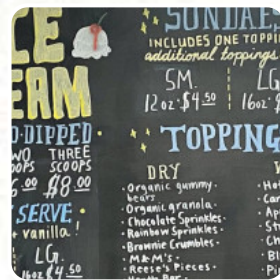 ICE
CREAM
DIPPED
TWO THREE
SCOOPS SCOOPS
.00 $8.00
SERVE
+ vanilla!
LG.
16oz $4.50
SUNDAES
INCLUDES ONE TOPPI
additional toppings
SM. LG
12oz $4.50 16oz
TOPPING
DRY
• Organic gummy
bears
• Organic granola
• Chocolate Sprinkles
• Rainbow Sprinkles
• Brownie Crumbles
• M&M's
• Reese's Pieces